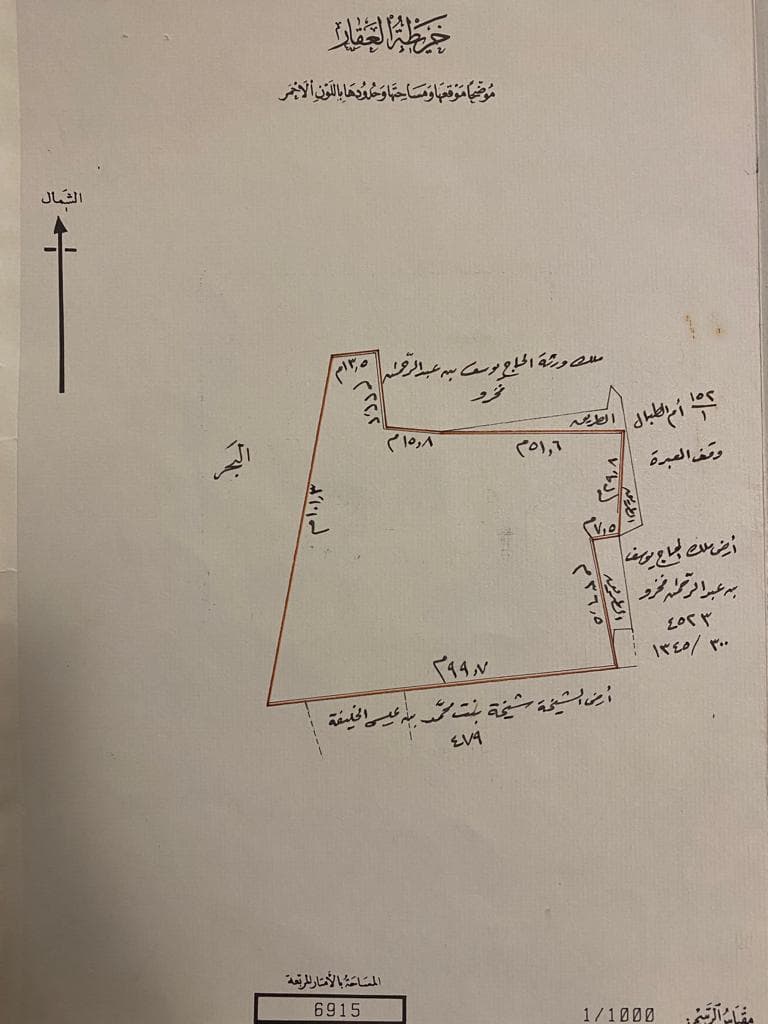 خريطة العقار
موضحًا موقعها ومساحتها وحدودها باللون الأحمر
الشمال
ملك ورثة الحاج يوسف بن عبدالرحمن
فخرو
١٣,٥م
٢٢,٢م
١٥,٨م
٥١,٦م
الطريق
١٥٢
١
أم الطبال
وقف العبرة
البحر
١٠١,٣م
٢٩,٨م
الطريق
٧,٥م
٣٦,٥م
الطريق
أرض ملك الحاج يوسف
بن عبدالرحمن فخرو
٤٥٢٣
٣٠٠/١٣٤٥
٩٩,٧م
أرض الشيخة شيخة بنت محمد بن عيسى الخليفة
٤٧٩
المساحة بالأمتار المربعة
6915
مقياس الرسم: 1/1000